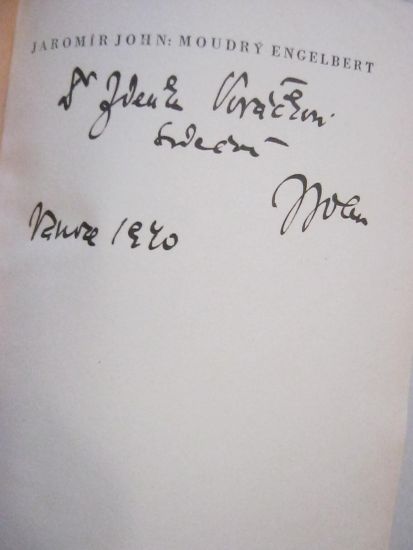 JAROMÍR JOHN: MOUDRÝ ENGELBERT
Dr Zdenku Vováčkovi
srdečně
JJohn
Vánoce 1940